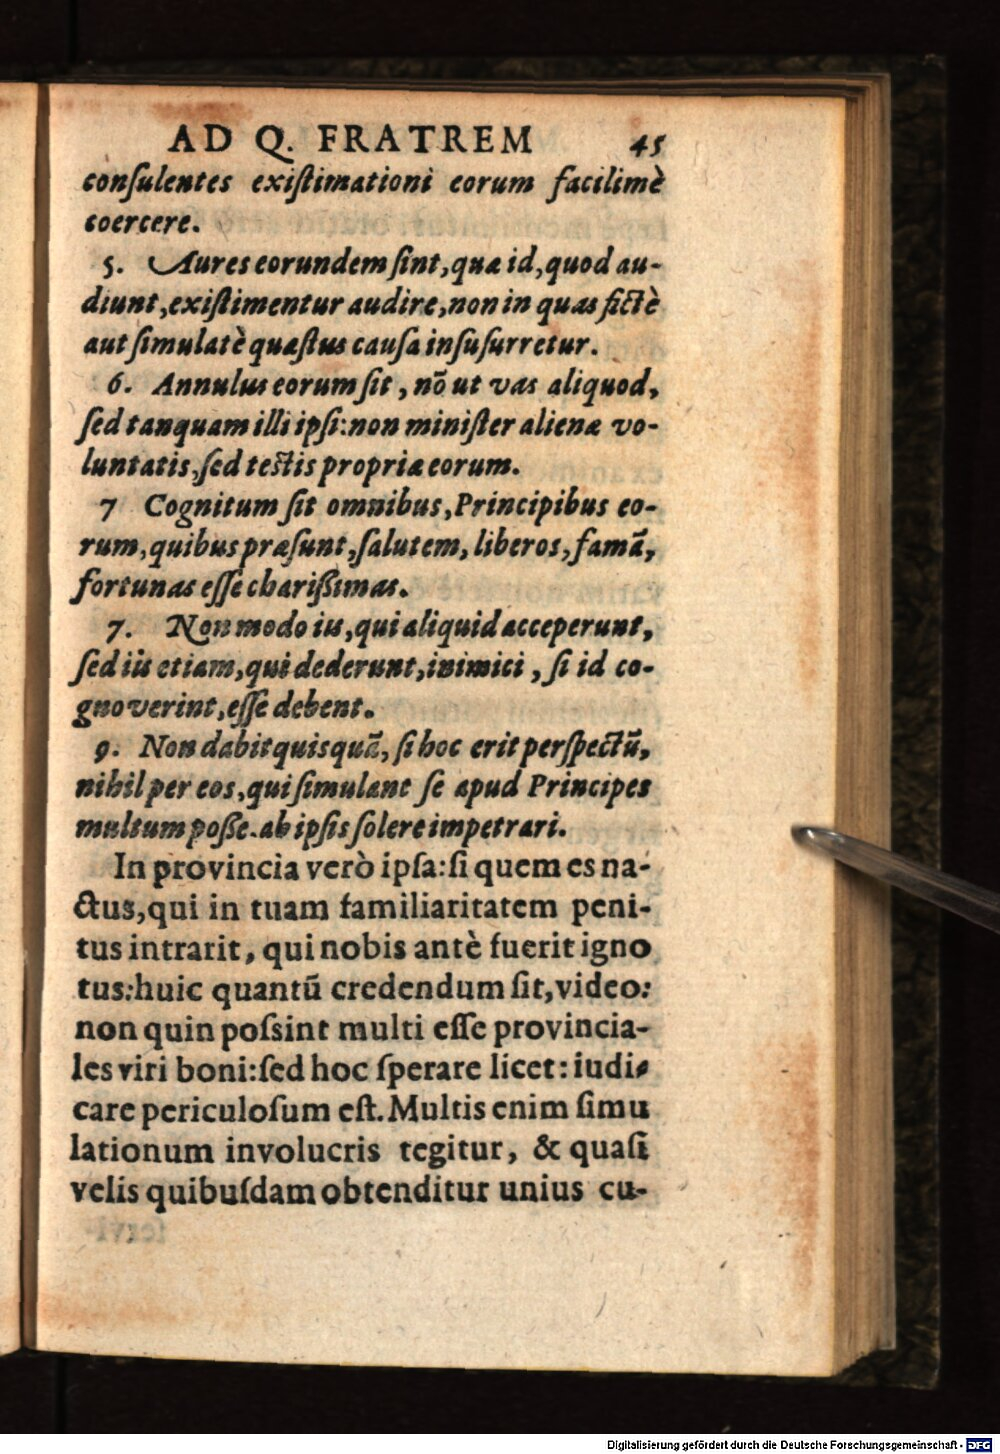 AD Q. FRATREM 45
conſulentes exiſtimationi eorum facilimè
coercere.
5. Aures eorundem ſint, quæ id, quod au-
diunt, exiſtimentur audire, non in quas fictè
aut ſimulatè quæſtus cauſa inſuſurretur.
6. Annulus eorum ſit, nō ut vas aliquod,
ſed tanquam illi ipſi: non miniſter alienæ vo-
luntatis, ſed teſtis propriæ eorum.
7 Cognitum ſit omnibus, Principibus eo-
rum, quibus præſunt, ſalutem, liberos, famā,
fortunas eſſe chariſſimas.
7. Non modo iis, qui aliquid acceperunt,
ſed iis etiam, qui dederunt, inimici, ſi id co-
gnoverint, eſſe debent.
9. Non dabit quisquā, ſi hoc erit perſpectū,
nihil per eos, qui ſimulant ſe apud Principes
multum poſſe. ab ipſis ſolere impetrari.
In provincia verò ipſa: ſi quem es na-
ctus, qui in tuam familiaritatem peni-
tus intrarit, qui nobis antè fuerit igno
tus: huic quantū credendum ſit, video:
non quin poſsint multi eſſe provincia-
les viri boni: ſed hoc ſperare licet: iudi-
care periculoſum eſt. Multis enim ſimu
lationum involucris tegitur, & quaſi
velis quibuſdam obtenditur unius cu-
Digitalisierung gefördert durch die Deutsche Forschungsgemeinschaft - DFG